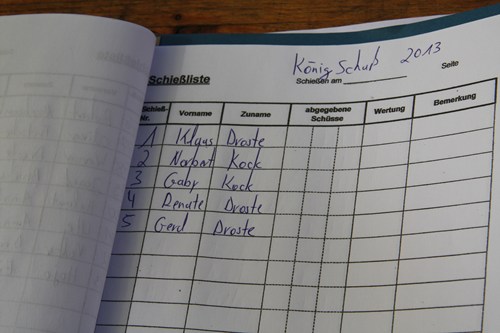 König Schuß 2013
Schießliste
Schießen am
Seite
Schieß-Nr. Vorname Zuname abgegebene Schüsse Wertung Bemerkung
1 Klaus Droste
2 Norbert Kock
3 Gaby Kock
4 Renate Droste
5 Gerd Droste